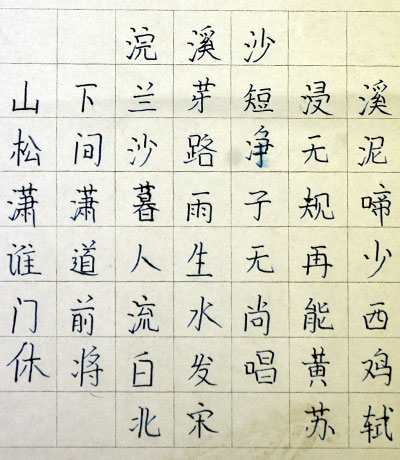 浣溪沙
山下兰芽短浸溪
松间沙路净无泥
潇潇暮雨子规啼
谁道人生无再少
门前流水尚能西
休将白发唱黄鸡
北宋 苏轼